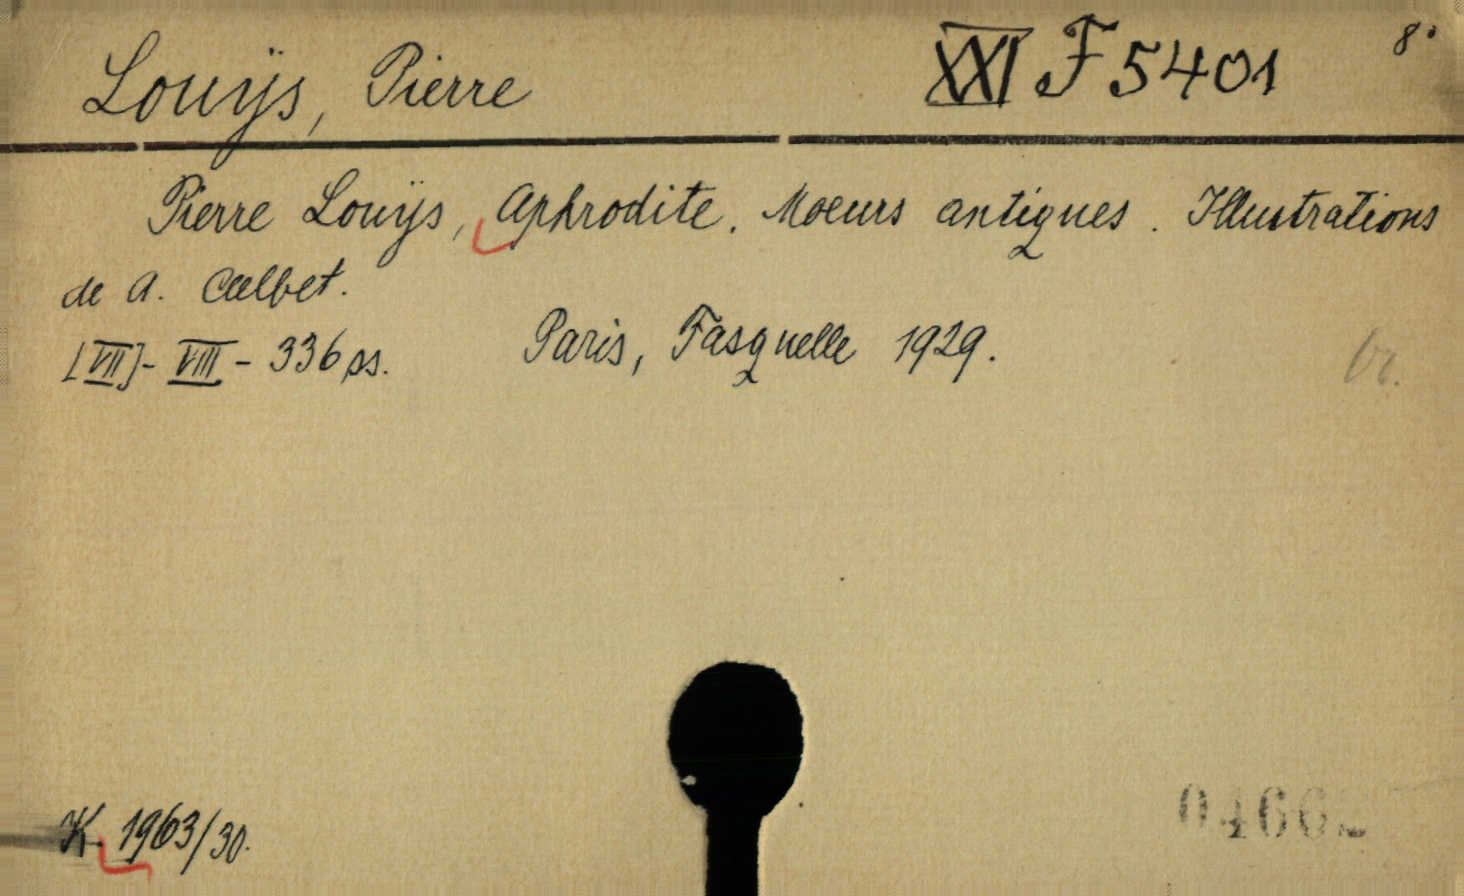 Louÿs, Pierre XXI F 5401 8°
Pierre Louÿs, Aphrodite. Moeurs antiques. Illustrations
de A. Calbet.
[VII]- VIII - 336 ss. Paris, Fasquelle 1929.
br.
K. 1963/30.
0466